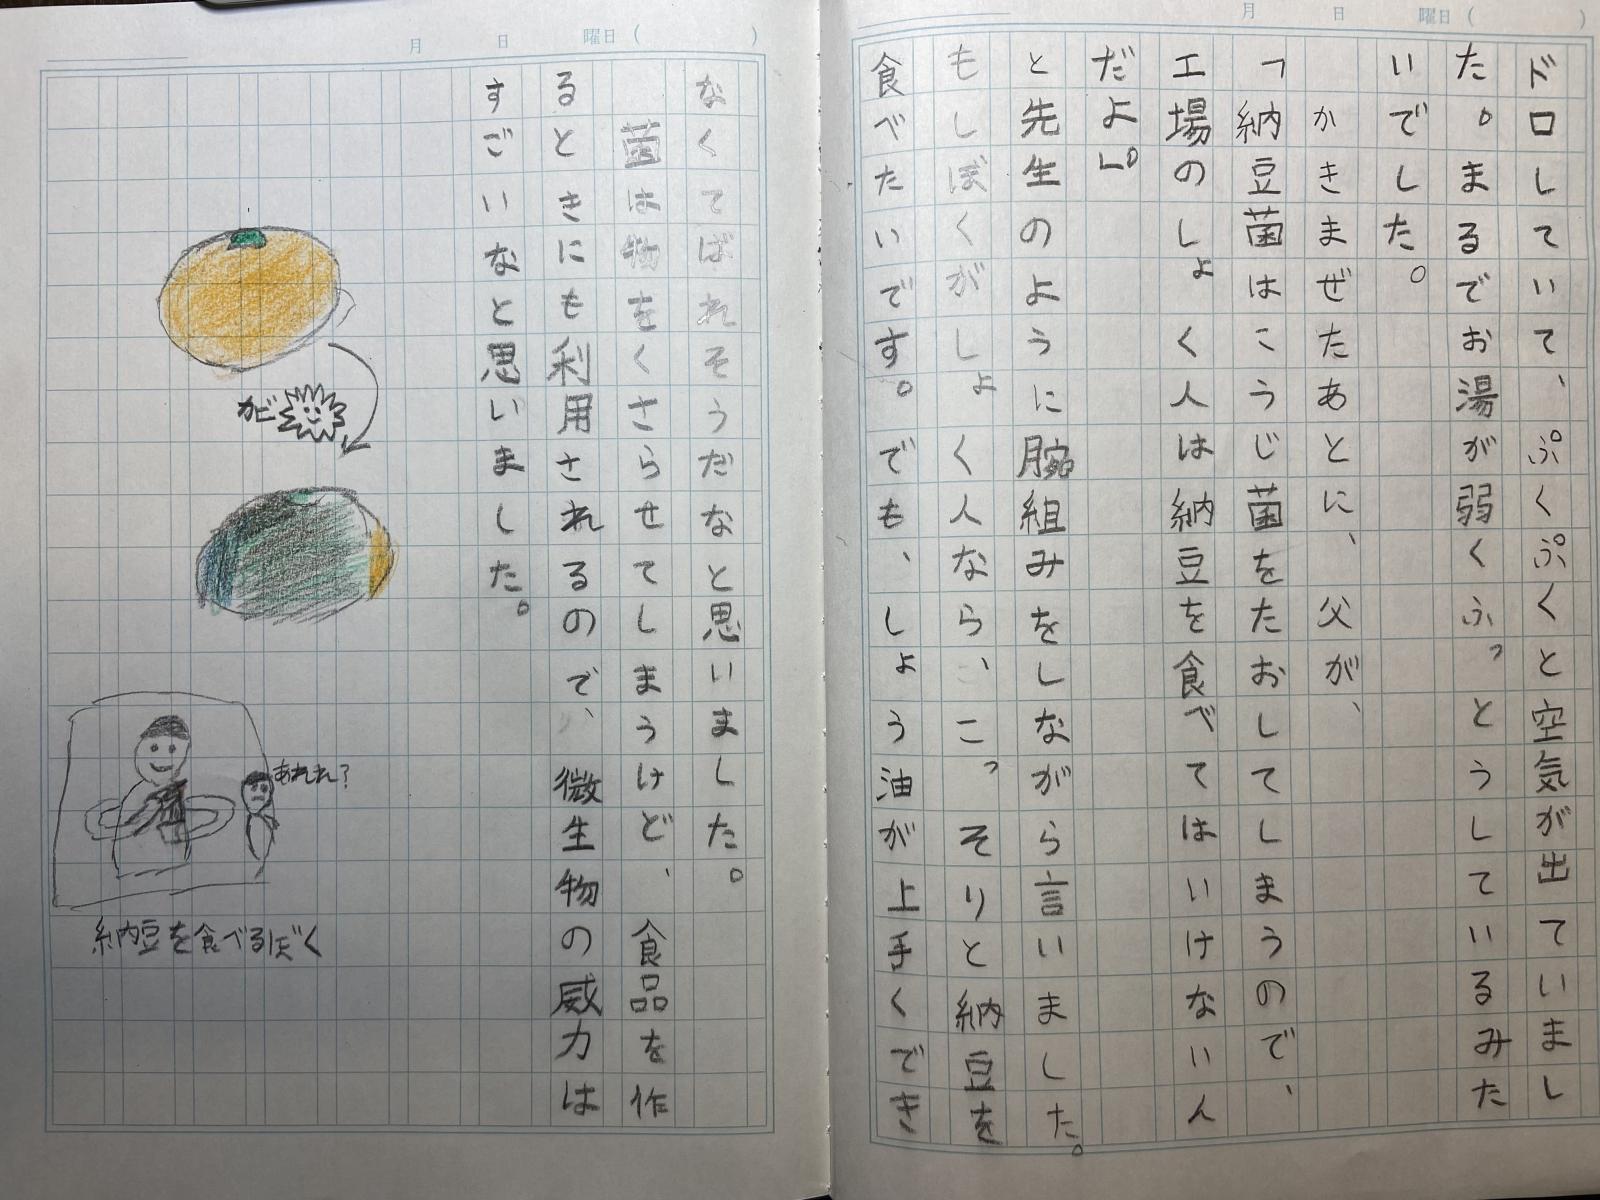 月 日 曜日( )
ドロしていて、ぷくぷくと空気が出ていまし
た。まるでお湯が弱くふっとうしているみた
いでした。
かきまぜたあとに、父が、
「納豆菌はこうじ菌をたおしてしまうので、
工場のしょく人は納豆を食べてはいけないん
だよ」。
と先生のように腕組みをしながら言いました。
もしぼくがしょく人なら、こっそりと納豆を
食べたいです。でも、しょう油が上手くでき
月 日 曜日( )
なくてばれそうだなと思いました。
菌は物をくさらせてしまうけど、食品を作
るときにも利用されるので、微生物の威力は
すごいなと思いました。
カビ
あれれ?
納豆を食べるぼく